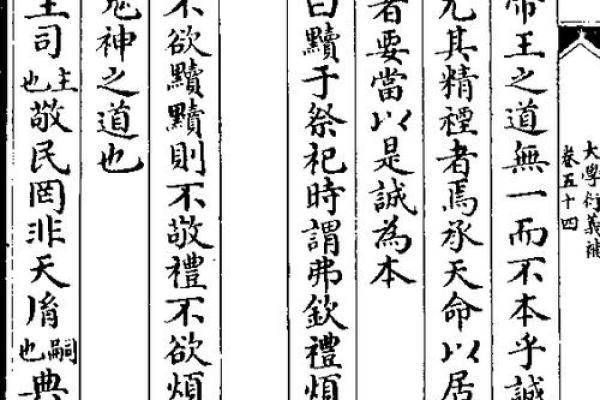 大學衍義補
卷五十四
帝王之道無一而不本乎誠
尤其精禋者焉承天命以居
者要當以是誠為本
曰黷于祭祀時謂弗欽禮煩
不欲黷黷則不敬禮不欲煩
鬼神之道也
王司主也敬民罔非天胤嗣也典